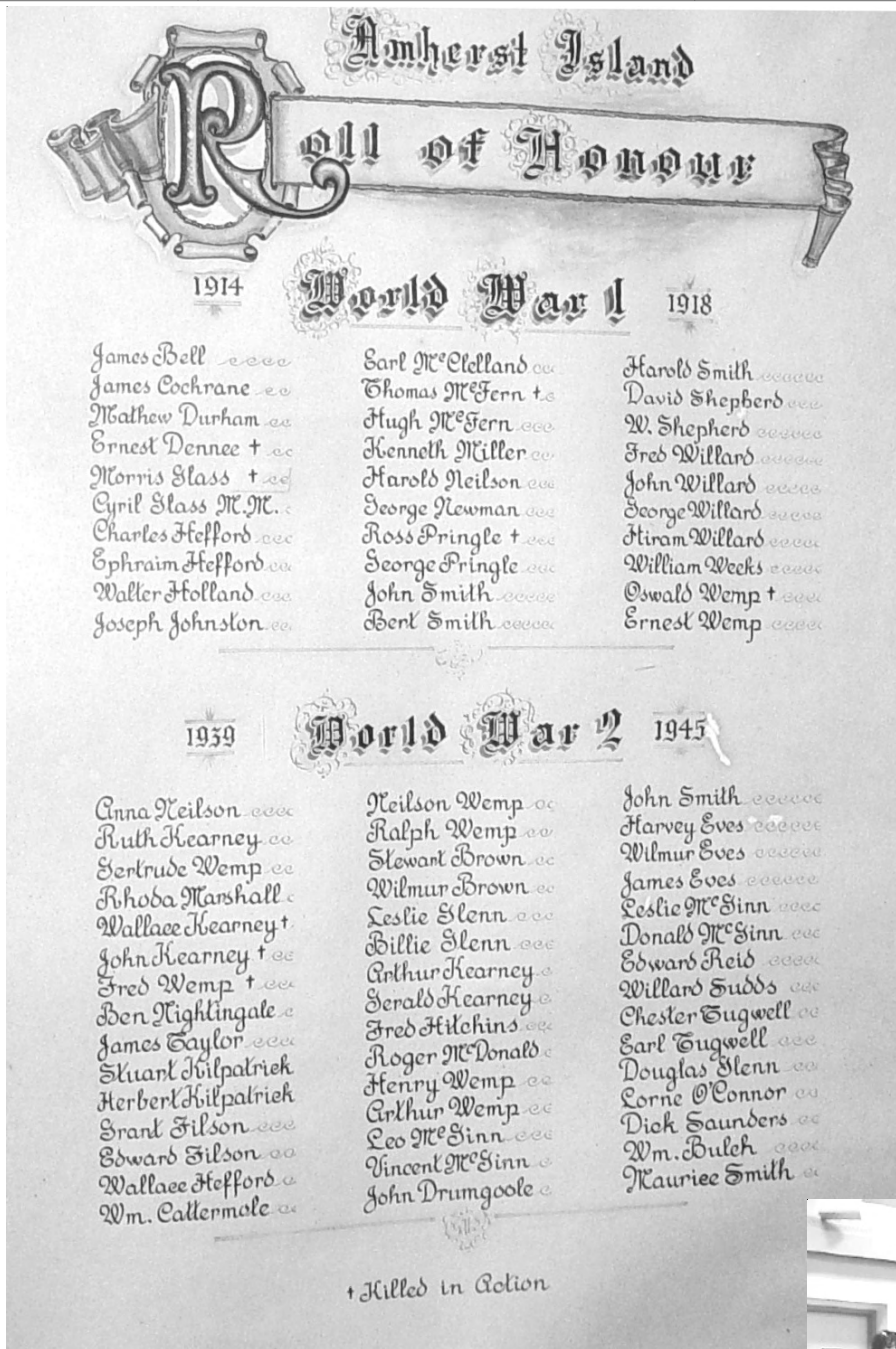 Amherst Island
Roll of Honour
1914 World War 1 1918
James Bell
James Cochrane
Mathew Durham
Ernest Dennee †
Morris Glass †
Cyril Glass M.M.
Charles Hefford
Ephraim Hefford
Walter Holland
Joseph Johnston
Earl McClelland
Thomas McFern †
Hugh McFern
Kenneth Miller
Harold Neilson
George Newman
Ross Pringle †
George Pringle
John Smith
Bert Smith
Harold Smith
David Shepherd
W. Shepherd
Fred Willard
John Willard
George Willard
Hiram Willard
William Weeks
Oswald Wemp †
Ernest Wemp
1939 World War 2 1945
Anna Neilson
Ruth Kearney
Gertrude Wemp
Rhoda Marshall
Wallace Kearney †
John Kearney †
Fred Wemp †
Ben Nightingale
James Taylor
Stuart Kilpatrick
Herbert Kilpatrick
Grant Filson
Edward Filson
Wallace Hefford
Wm. Cattermole
Neilson Wemp
Ralph Wemp
Stewart Brown
Wilmur Brown
Leslie Glenn
Billie Glenn
Arthur Kearney
Gerald Kearney
Fred Hitchins
Roger McDonald
Henry Wemp
Arthur Wemp
Leo McGinn
Vincent McGinn
John Drumgoole
John Smith
Harvey Eves
Wilmur Eves
James Eves
Leslie McGinn
Donald McGinn
Edward Reid
Willard Sudds
Chester Tugwell
Earl Tugwell
Douglas Glenn
Lorne O'Connor
Dick Saunders
Wm. Bulch
Maurice Smith
† Killed in Action